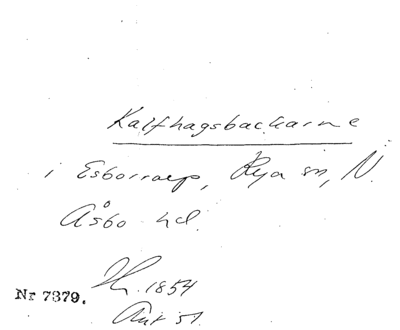 Kalfhagsbackarne
i Esborrarp, Rya sn, N.
Åsbo hd.
1854
Nr 7379.
Ant 51.